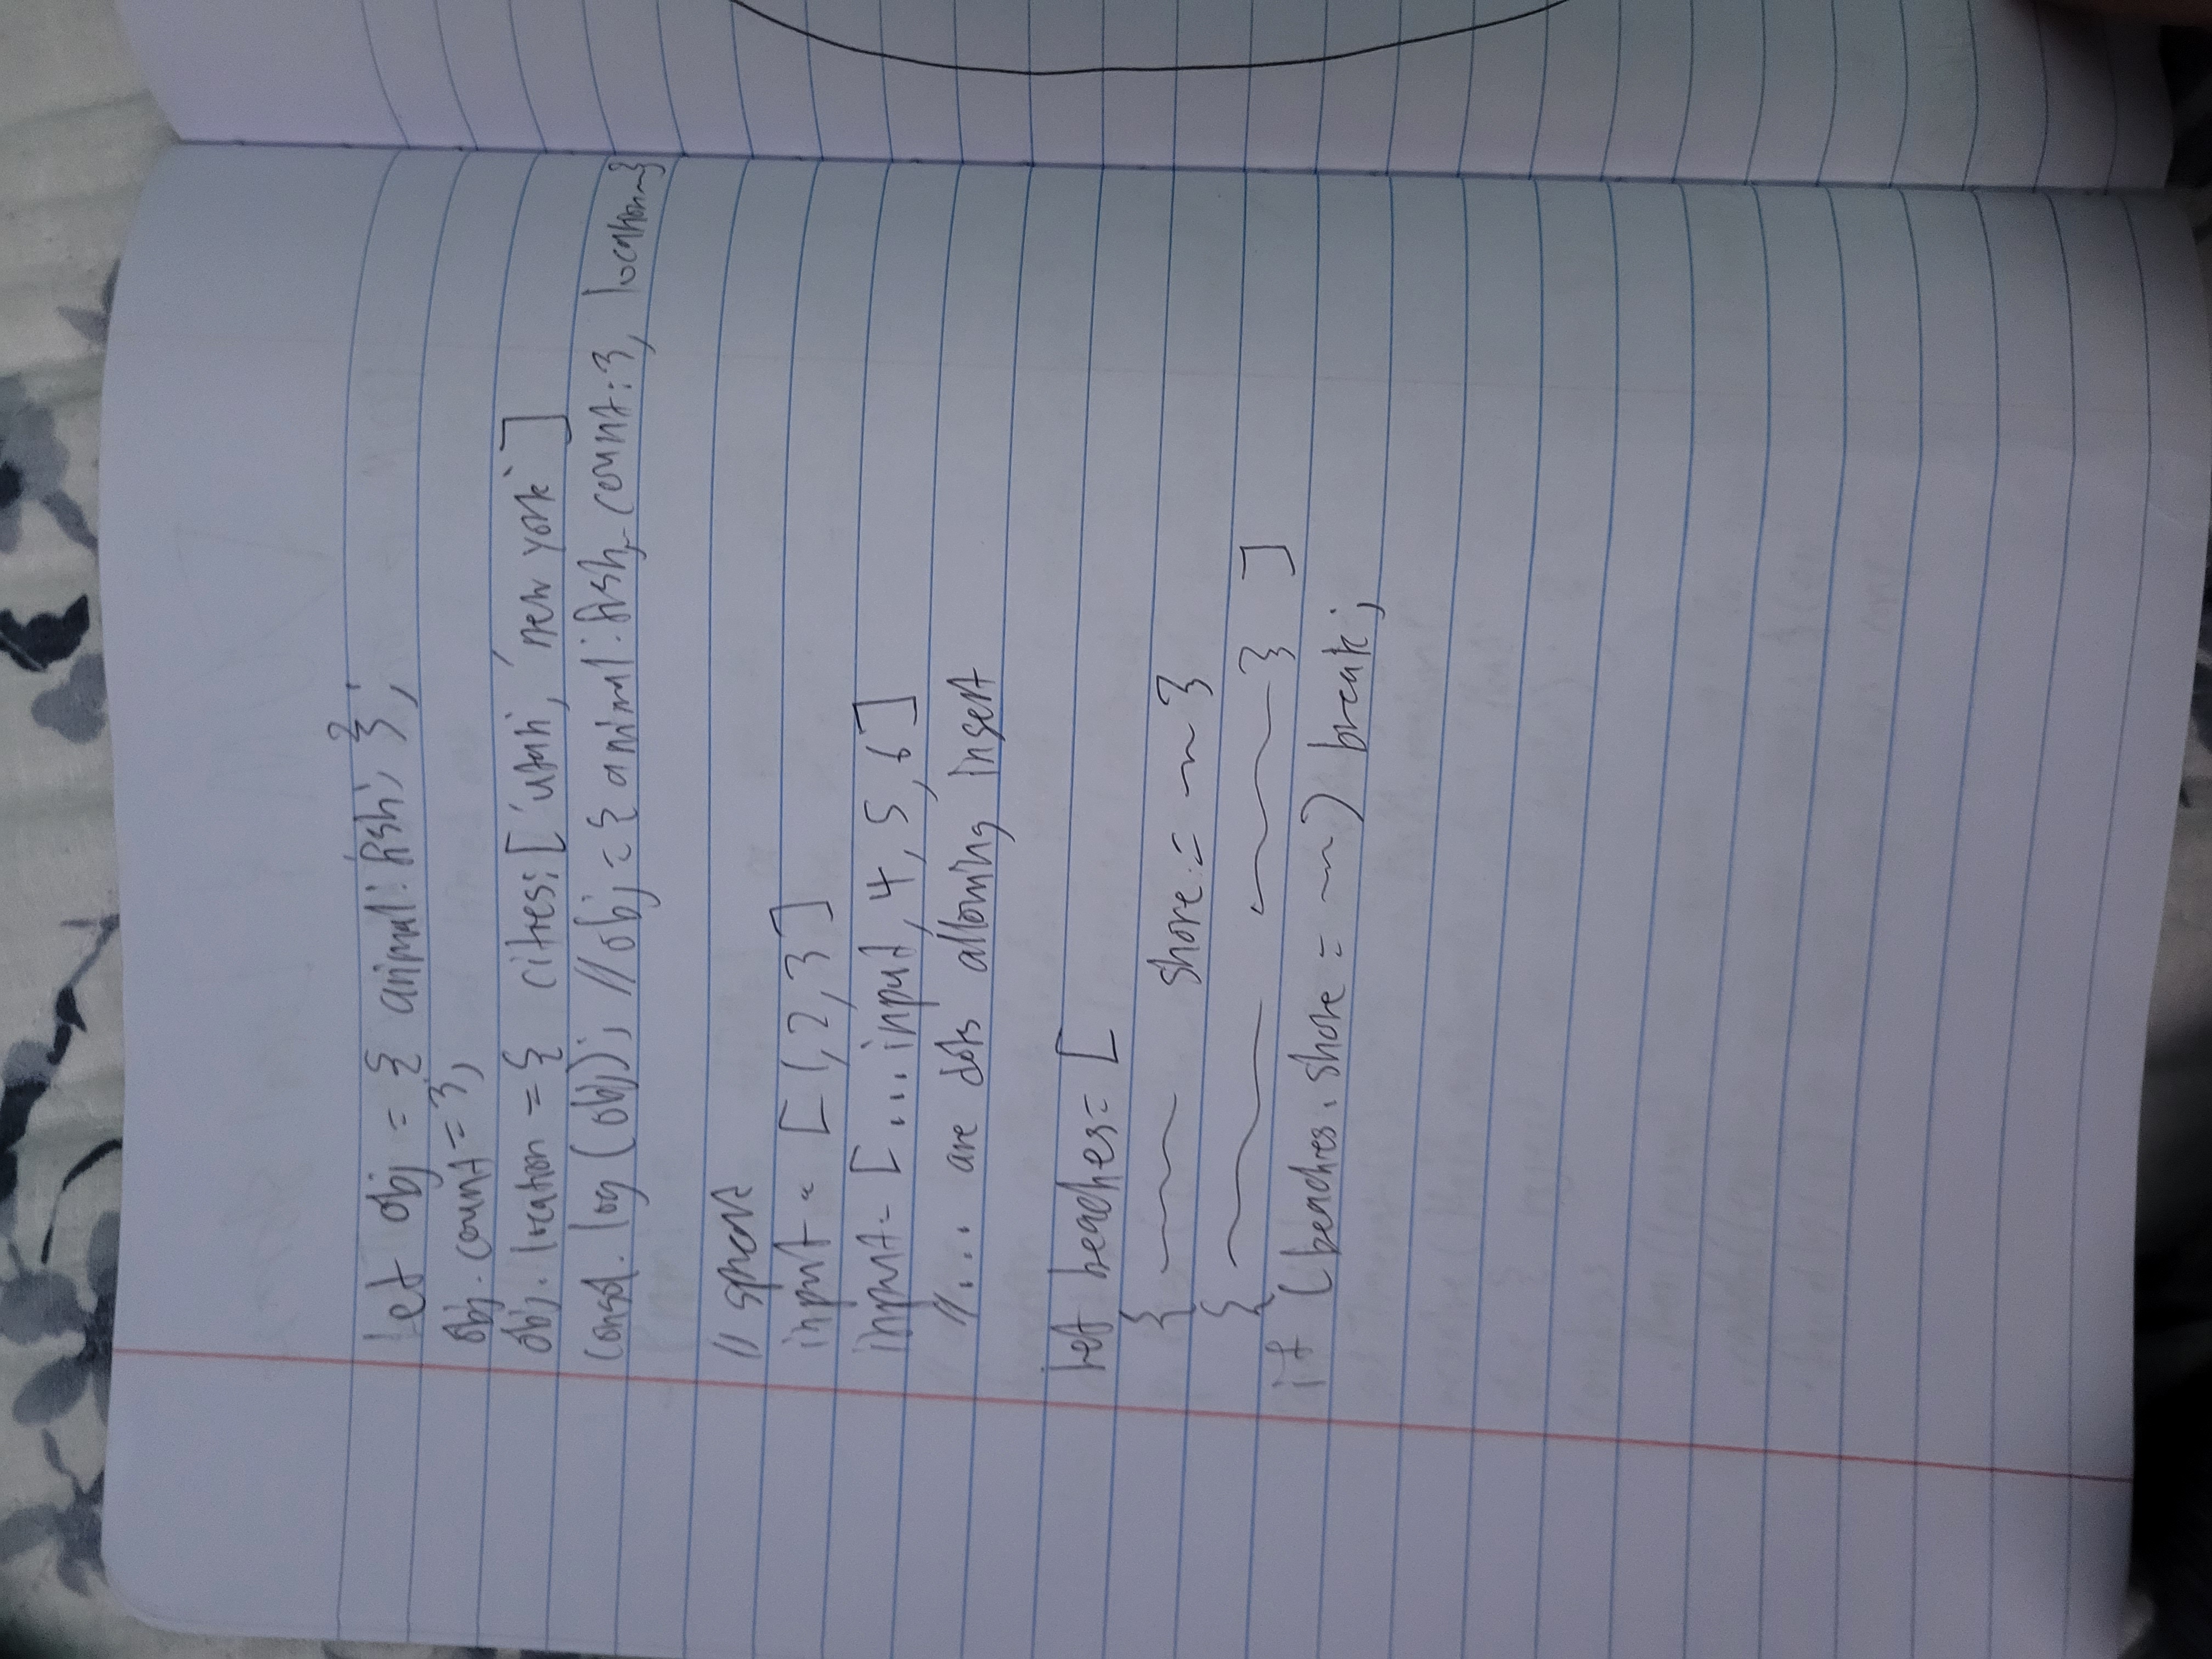 let obj = { animal: 'fish', };
obj.count = 3;
obj.location = { cities: ['utah', 'new york']
consol.log(obj); //obj = { animal: fish, count: 3, location~}
//
input = [1, 2, 3]
input = [...input, 4, 5, 6]
//... are dots allowing insert
let beaches = [
{ shore = ~ }
{ } ]
if (beaches.shore = ~) break;